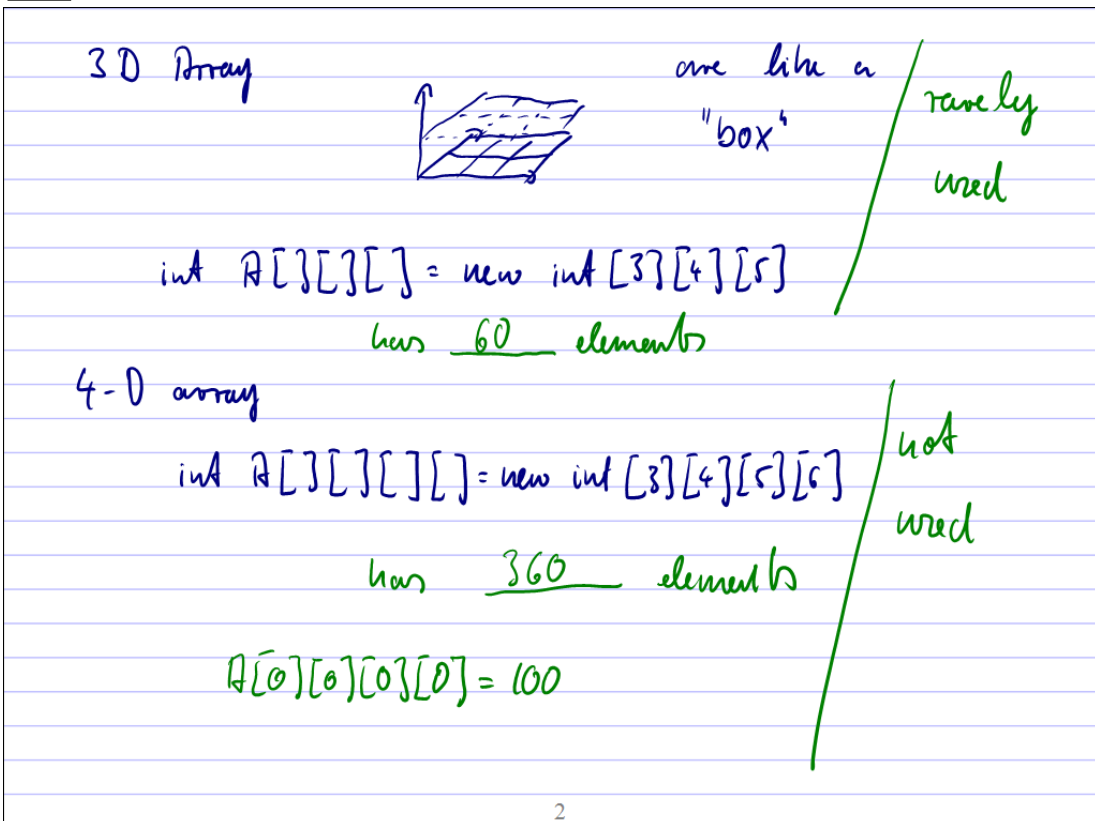 3D Array are like a
"box"
rarely
used
int A[][][] = new int [3][4][5]
has 60 elements
4-D array
int A[][][][] = new int [3][4][5][6]
not
used
has 360 elements
A[0][0][0][0] = 100
2